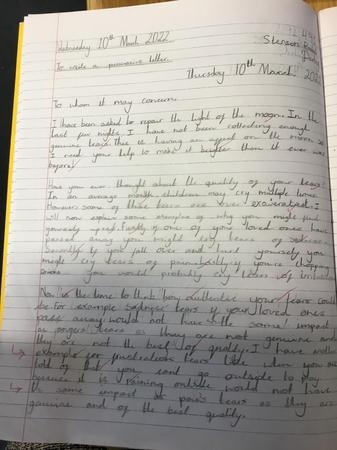 Wednesday 10th March 2022
To write a persuasive letter.
Thursday 10th March 202
To whom it may concern
I have been asked to repair the light of the moon. In the
last few nights, I have not been collecting enough
genuine tears. This is having an effect on the moon so
I need your help to make it brighter than it ever was
before!
Have you ever thought about the quality of your tears?
In an average month children may cry multiple times
however some of these tears are over exaggerated. I
will now explain some examples of why you might find
yourself upset. Firstly if one of your loved ones have
passed away you might cry tears of sadness.
Secondly if you fall over and hurt yourself you
might cry tears of pain. Lastly if you're chopping
onions you would probably cry tears of irritation
Now is the time to think how authentic your tears could
be for example sadness tears if your loved ones
pass away would not have the same impact
as anger tears as they are not genuine and
they are not the best of quality. I have another
example for frustration tears like when you are
told of that you cant go outside to play
because it is raining outside would not have
the same impact as pain tears as they are
genuine and of the best quality.